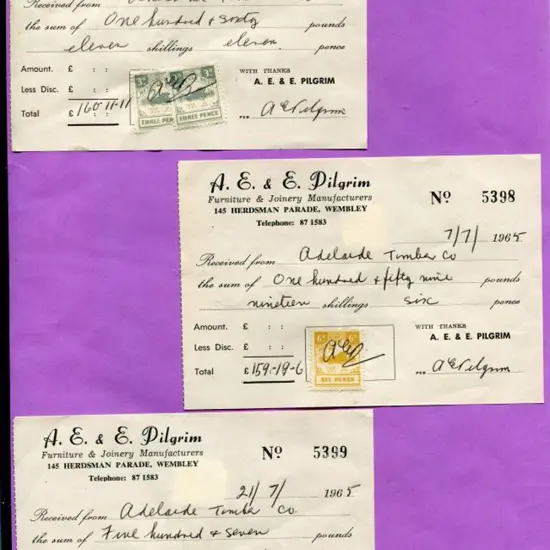 Received from
the sum of One hundred & sixty pounds
eleven shillings eleven pence
Amount. £ : :
Less Disc. £ : :
Total £ 160-11-11
THREE PENCE THREE PENCE
WITH THANKS
A. E. & E. PILGRIM
... A E Pilgrim
A. E. & E. Pilgrim
Furniture & Joinery Manufacturers
145 HERDSMAN PARADE, WEMBLEY
Telephone: 87 1583
No 5398
7/7/ 1965
Received from Adelaide Timber Co
the sum of One hundred & fifty nine pounds
nineteen shillings six pence
Amount. £ : :
Less Disc. £ : :
Total £ 159-19-6
SIX PENCE
WITH THANKS
A. E. & E. PILGRIM
... A E Pilgrim
A. E. & E. Pilgrim
Furniture & Joinery Manufacturers
145 HERDSMAN PARADE, WEMBLEY
Telephone: 87 1583
No 5399
21/7/ 1965
Received from Adelaide Timber Co.
the sum of Five hundred & seven pounds